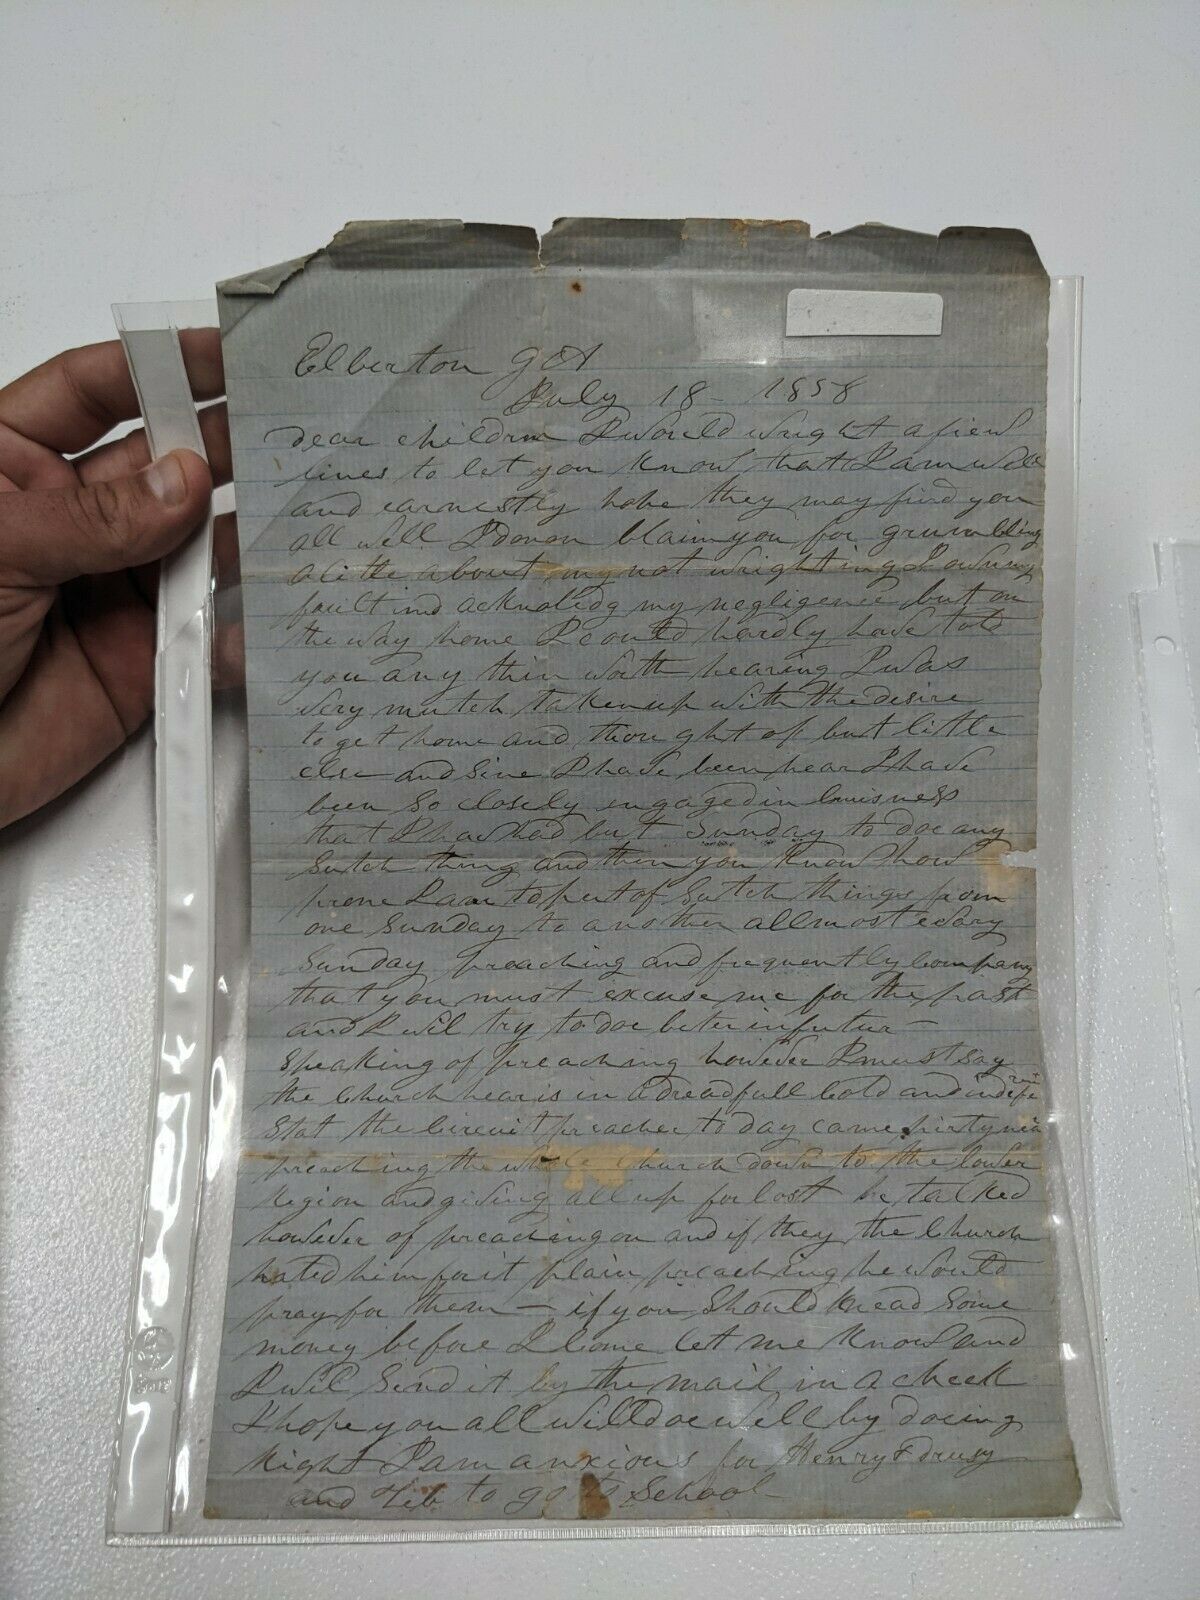 Elberton GA
July 18 - 1858
Dear children I would wright a fiew
lines to let you know that I am well
and earnestly hope they may find you
all well I donon blaim you for grumbling
a little about my not wrighting I own my
fault and acknolidg my negligence but on
the way home I could hardly have told
you any thin worth hearing I was
very mutch taken up with the desire
to get home and thought of but little
else and Sine I have been hear I have
been So closely engaged in buisness
that I hav had but Sunday to doe any
Sutch thing and then you know how
prone I am to put of Sutch things from
one Sunday to another allmost evary
Sunday preaching and frequently Company
that you must excuse me for the past
and I wil try to doe beter in futur —
Speaking of preaching however I must say
the Church hear is in a dreadfull Cold and
Stat the Circuit preacher to day came
preaching the whole Church down to the lower
Region and giving all up for lost he talked
however of preaching on and if they the Church
hated him for it plain preaching he would
pray for them — if you Should kneed Some
money before I Come let me know and
I wil Send it by the mail in a check
I hope you all will doe well by doeing
Right I am anxious for Henry & drury
and to go to School